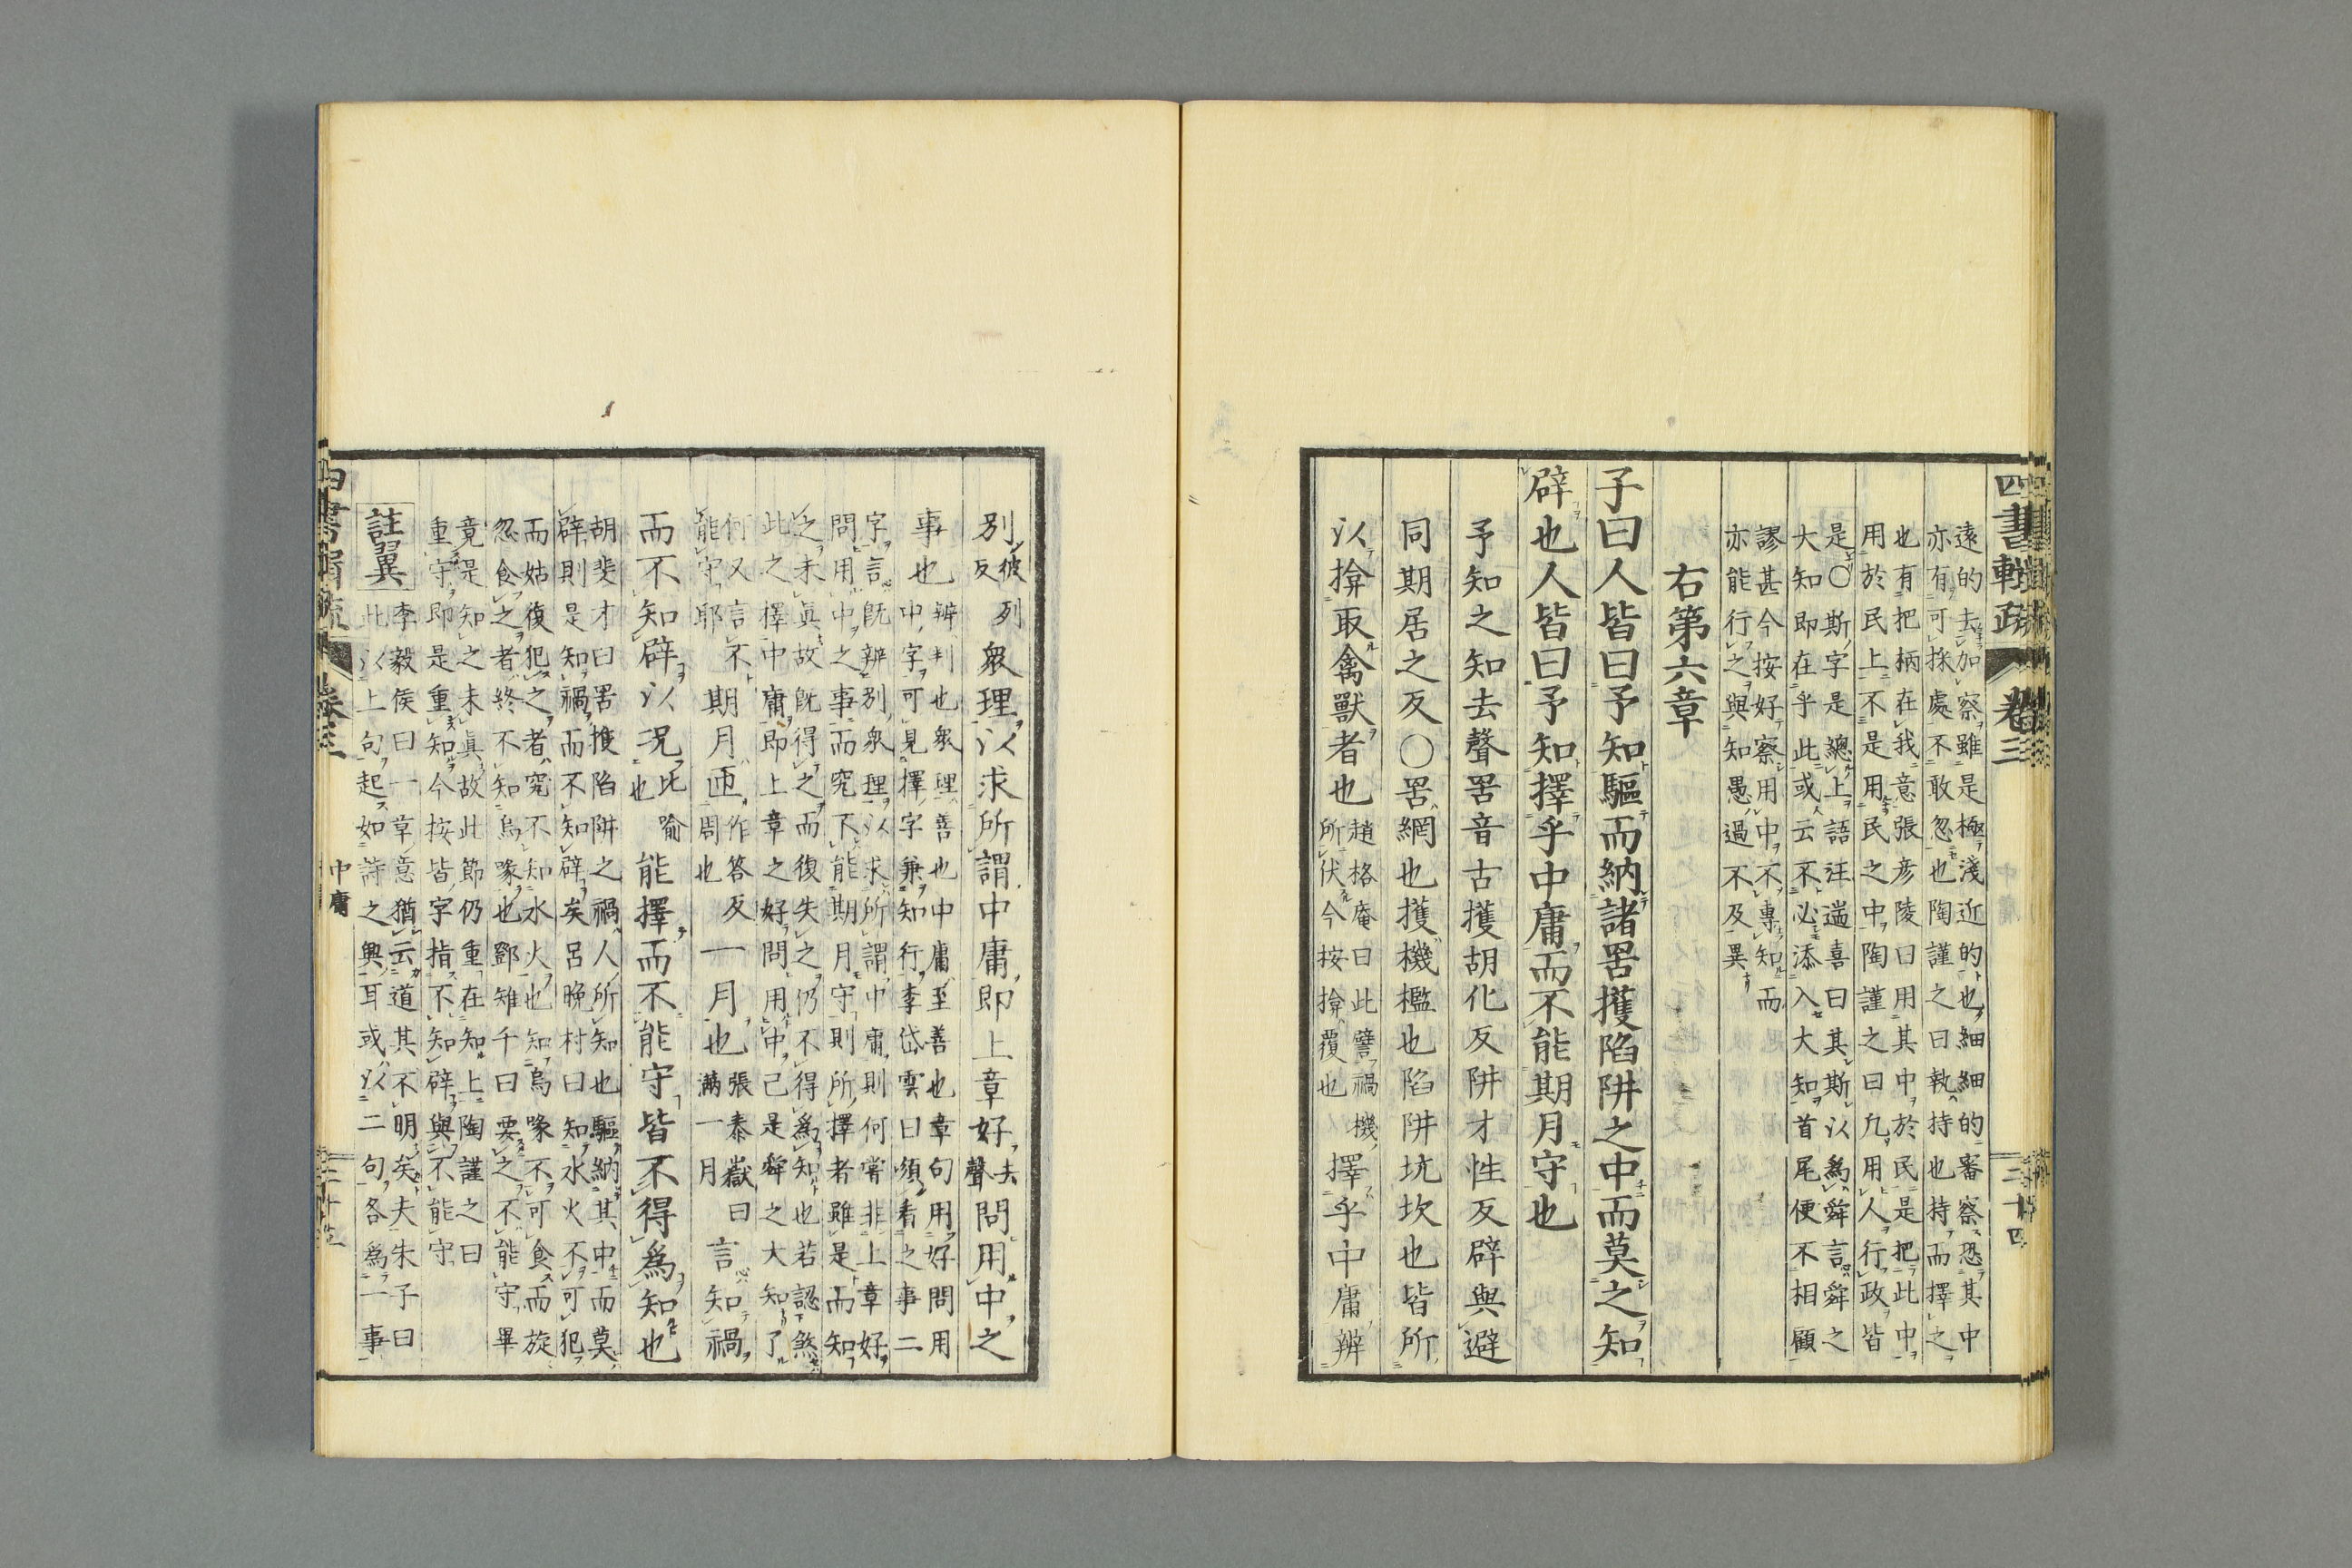 四書輯疏 卷三 二十四
遠的去加察雖是極淺近的也細細的審察恐其中
亦有可採處不敢忽也陶謹之曰執持也持而擇之
也有把柄在我意張彦陵曰用其中於民是把此中
用於民上不是用民之中陶謹之曰凡用人行政皆
是○斯字是總上語汪遄喜曰其斯以爲舜言舜之
大知即在乎此或云不必添入大知首尾便不相顧
謬甚今按好察用中不專知而
亦能行之與知愚過不及異
右第六章
子曰人皆曰予知驅而納諸罟擭陷阱之中而莫之知
辟也人皆曰予知擇乎中庸而不能期月守也
予知之知去聲罟音古擭胡化反阱才性反辟與避
同期居之反○罟網也擭機檻也陷阱坑坎也皆所
以揜取禽獸者也
趙格庵曰此譬禍機
所伏今按揜覆也
擇乎中庸辨
別
彼列
反
衆理以求所謂中庸即上章好
去
聲
問用中之
事也
辨判也衆理善也中庸至善也章句用好問用
中字可見擇字兼知行李岱雲曰須看之事二
字言既辨別衆理以求所謂中庸則何嘗非上章好
問用中之事而究不能期月守則所擇者雖是而知
之未眞故既得之而復失之仍不得爲知也若認煞
此之擇中庸即上章之好問用中已是舜之大知了
何又言不
能守耶
期月匝
作答反
周也
一月也
張泰嶽曰
滿一月
言知禍
而不知辟以况
比喻
也
能擇而不能守皆不得爲知也
胡斐才曰罟擭陷阱之禍人所知也驅納其中而莫
辟則是知禍而不知辟矣呂晩村曰知水火不可犯
而姑復犯之者究不知水火也知烏喙不可食而旋
忽食之者終不知烏喙也鄧雉千曰要之不能守畢
竟是知之未眞故此節仍重在知上陶謹之曰
重守即是重知今按皆字指不知辟與不能守
註翼
李毅侯曰一章意猶云道其不明矣夫朱子曰
此以上句起如詩之興耳或以二句各爲一事
卷三 中庸